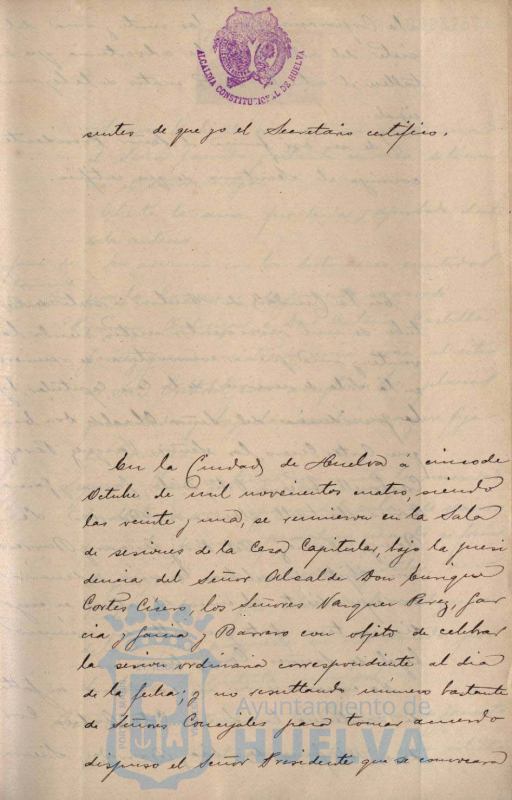 ALCALDIA CONSTITUCIONAL DE HUELVA
sentes de que yo el Secretario certifico.
En la Ciudad de Huelva a cinco de
Octubre de mil novecientos cuatro, siendo
las veinte y una, se reunieron en la Sala
de sesiones de la Casa Capitular, bajo la presi
dencia del Señor Alcalde Don Enrique
Cortes Cisero, los Señores Vazquez Perez, Gar
cia y Garcia y Barrero con objeto de celebrar
la sesion ordinaria correspondiente al dia
de la fecha; y no resultando número bastante
de Señores Concejales para tomar acuerdo
dispuso el Señor Presidente que se convocara
Ayuntamiento de
HUELVA